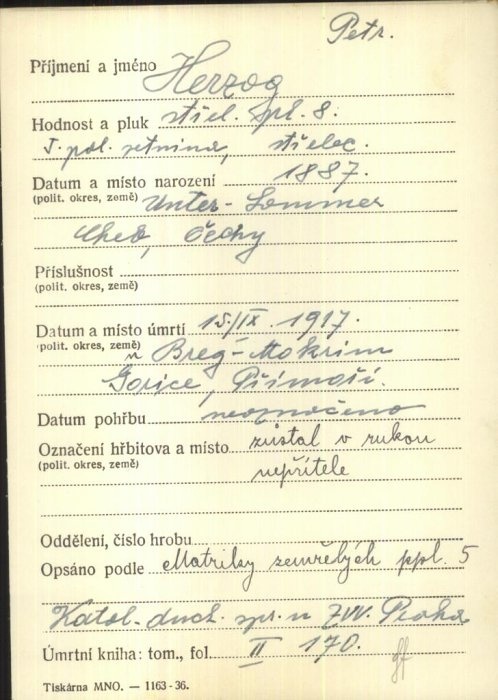 Petr.
Příjmení a jméno Herzog
Hodnost a pluk střel. pl. 8.
I. pol. setnina, střelec.
Datum a místo narození 1887.
(polit. okres, země) Unter-Lommer
Cheb, Čechy
Příslušnost
(polit. okres, země)
Datum a místo úmrtí 15./IX. 1917.
(polit. okres, země) u Breg-Mokrim
Gorice, Přímoří.
Datum pohřbu neoznačeno
Označení hřbitova a místo zůstal v rukou
(polit. okres, země) nepřítele
Oddělení, číslo hrobu
Opsáno podle Matriky zemřelých ppl. 5
Katol. duch. spr. u ZVV. Praha
Úmrtní kniha: tom., fol. II 170.
Tiskárna MNO. — 1163-36.